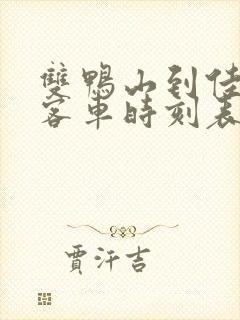 雙鴨山到佳
客車時刻表
賈汗吉